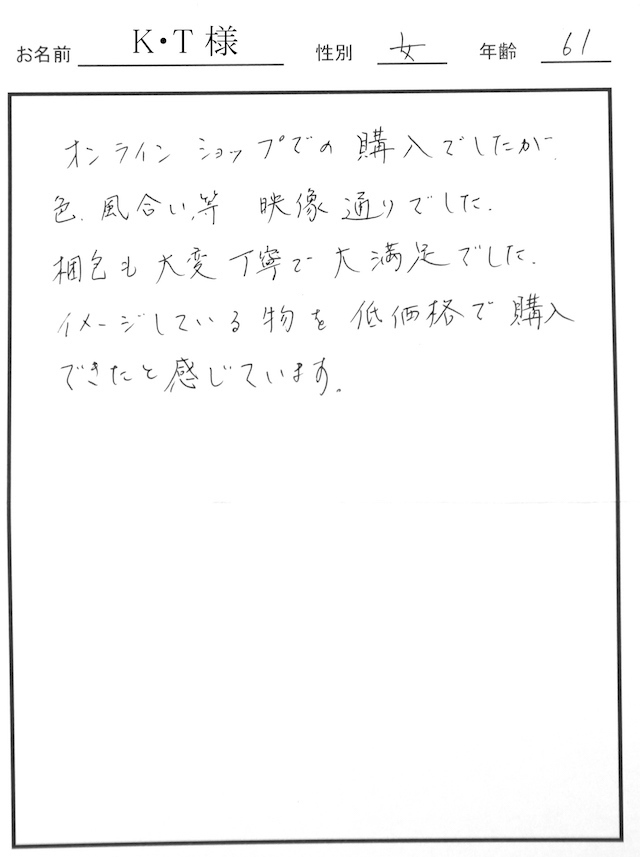 お名前 K・T 様 性別 女 年齢 61
オンラインショップでの購入でしたが、
色、風合い、等 映像通りでした。
梱包も大変丁寧で大満足でした。
イメージしている物を低価格で購入
できたと感じています。